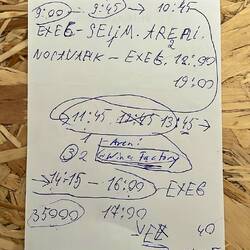 9:00 — 9:45 → 10:45
EXEG - SELIM. AREPI.
2
NORAVANK - EXEG. 18:00
19:00
11:45 12:45 13:45 →
1 Areni
3 2 Wine Factory
→ 14:15 — 16:00 — EXEG
35000 17:00
40